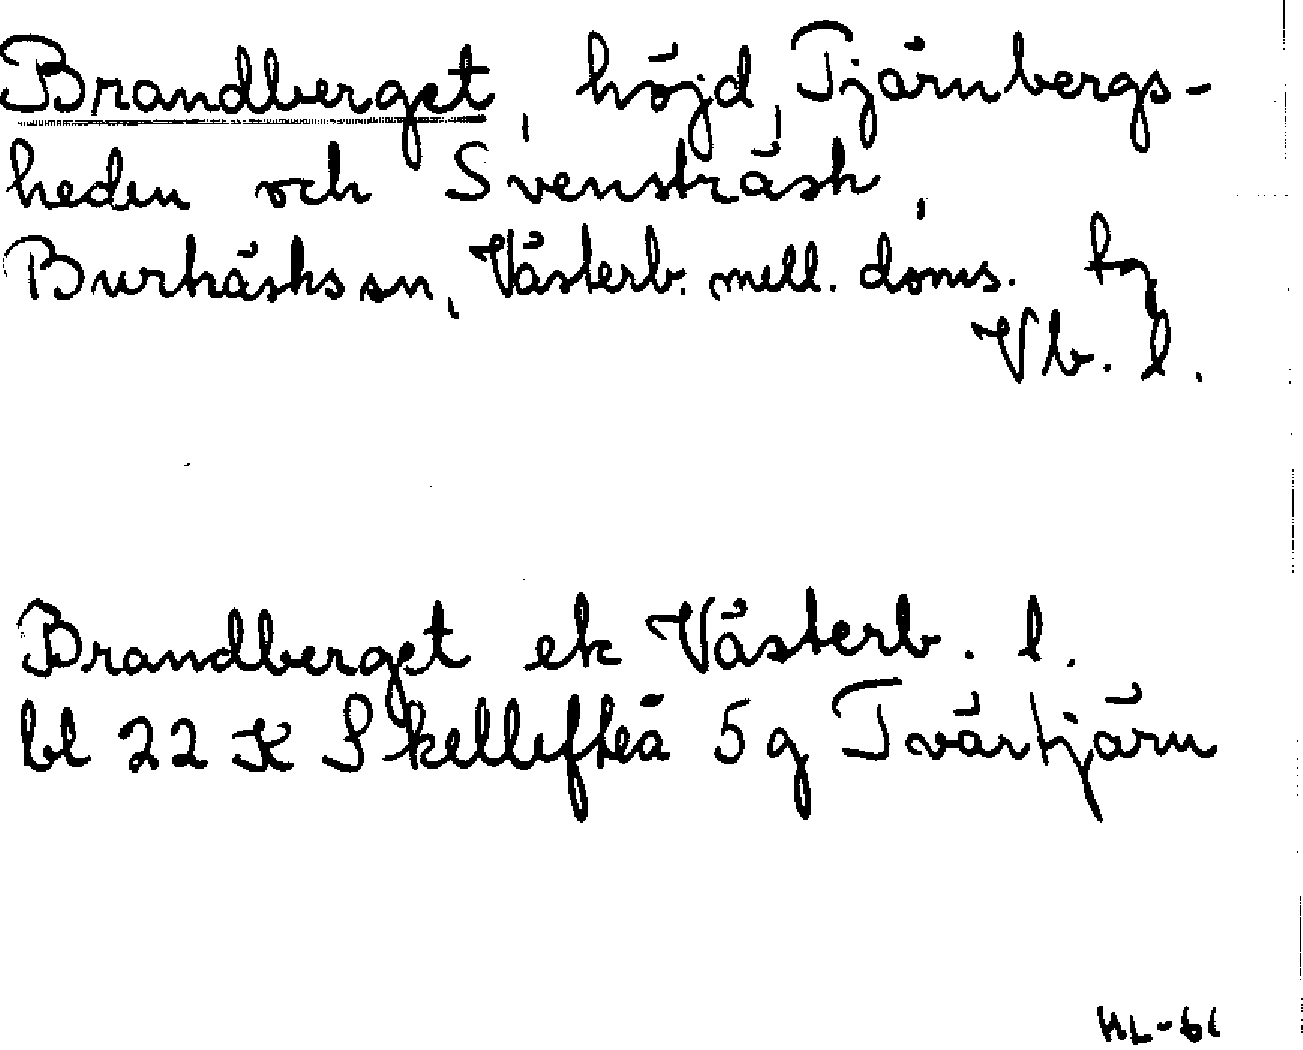 Brandberget, höjd, Tjärnbergs-
heden och Svensträsk,
Burträsks sn, Västerb. mell. doms. fg
Vb. l.
Brandberget ek Västerb. l.
bl 22 K Skellefteå 5 g Tvärtjärn
HL-61